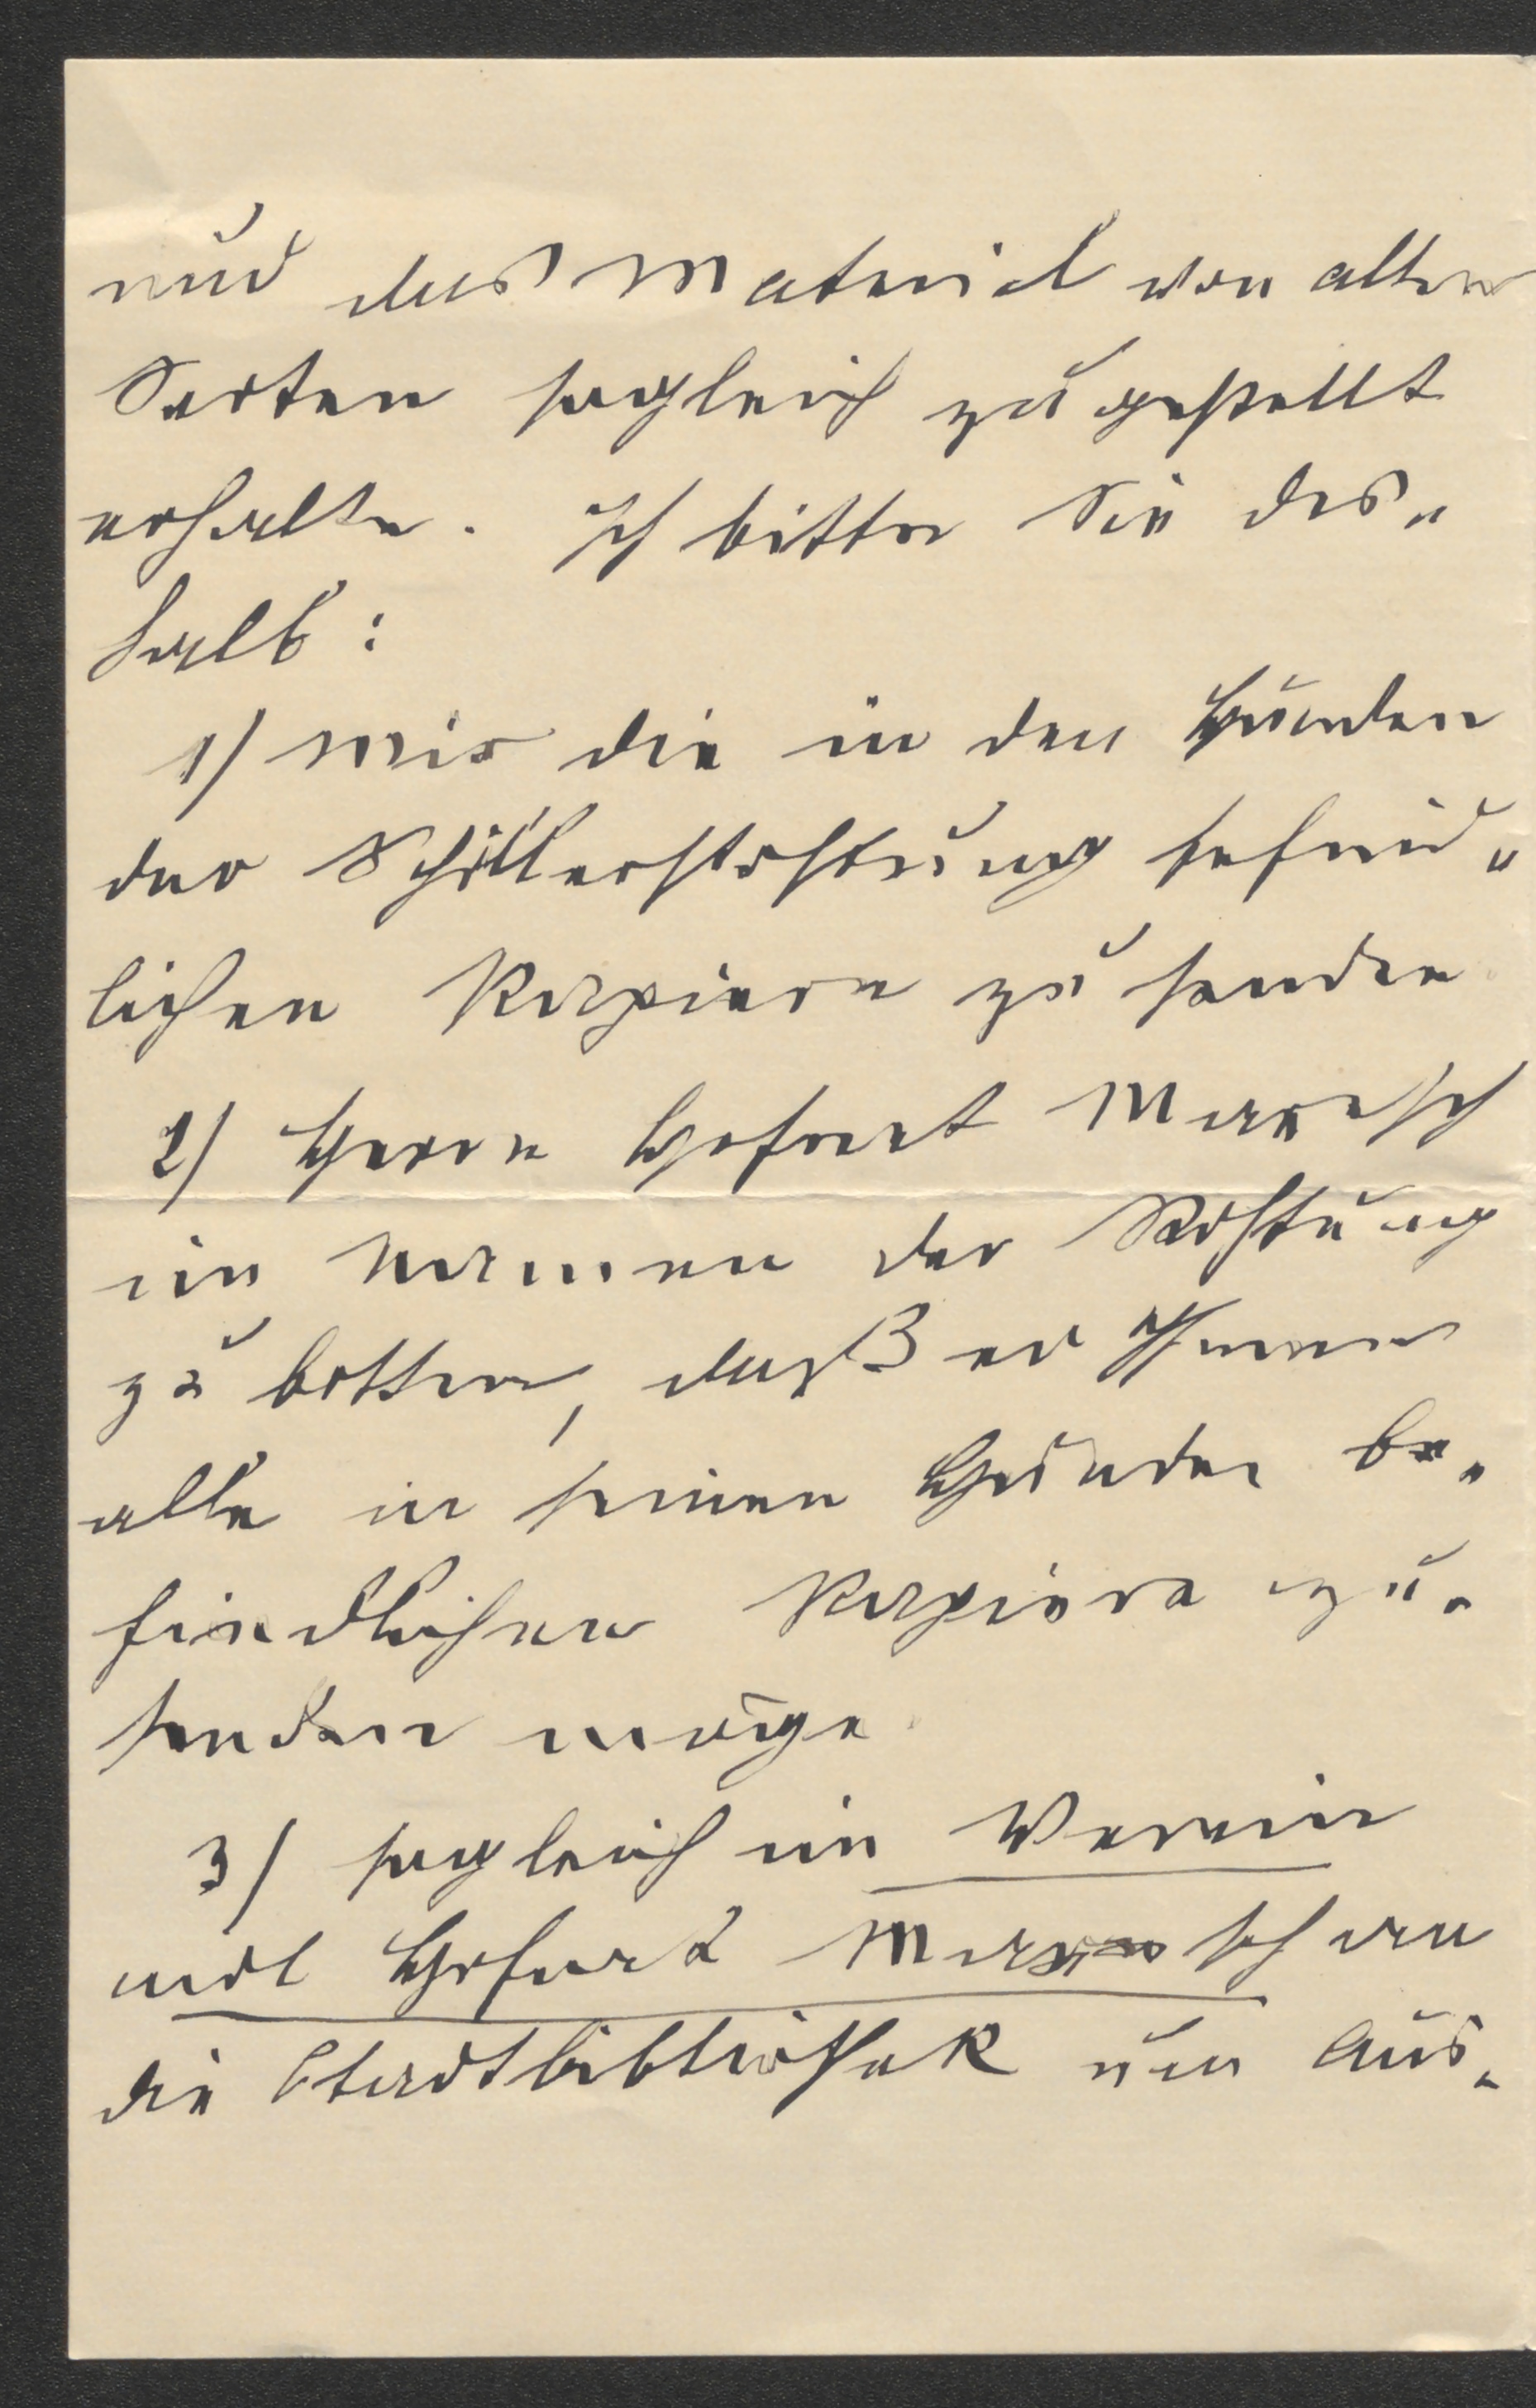 und das Material von allen
Seiten sogleich zugestellt
erhalte. Ich bitte Sie des„
halb:
1) mir die in den Händen
der Schillerstiftung befind„
lichen Papiere zu senden
2) Herrn Hofrat Maresch
im Namen der Stiftung
zu bitten, daß er Ihnen
alle in seinen Händen be„
findlichen Papiere zu„
senden möge.
3) sogleich im Verein
mit Hofrat Maresch an
die Stadtbibliothek um Aus„